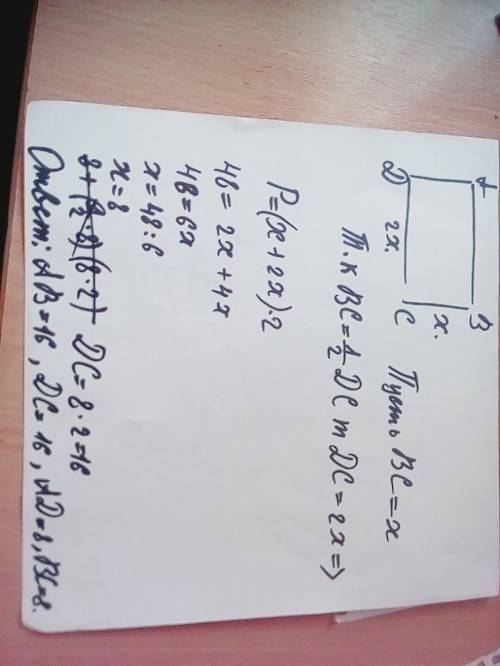 A B
x.
D 2x. C
Пусть BC = x
Т.к BC = 1/2 DC т DC = 2x =>
P = (x + 2x) · 2
48 = 2x + 4x
48 = 6x
x = 48 : 6
x = 8
DC = 8 · 2 = 16
Ответ: AB = 16, DC = 16, AD = 8, BC = 8.